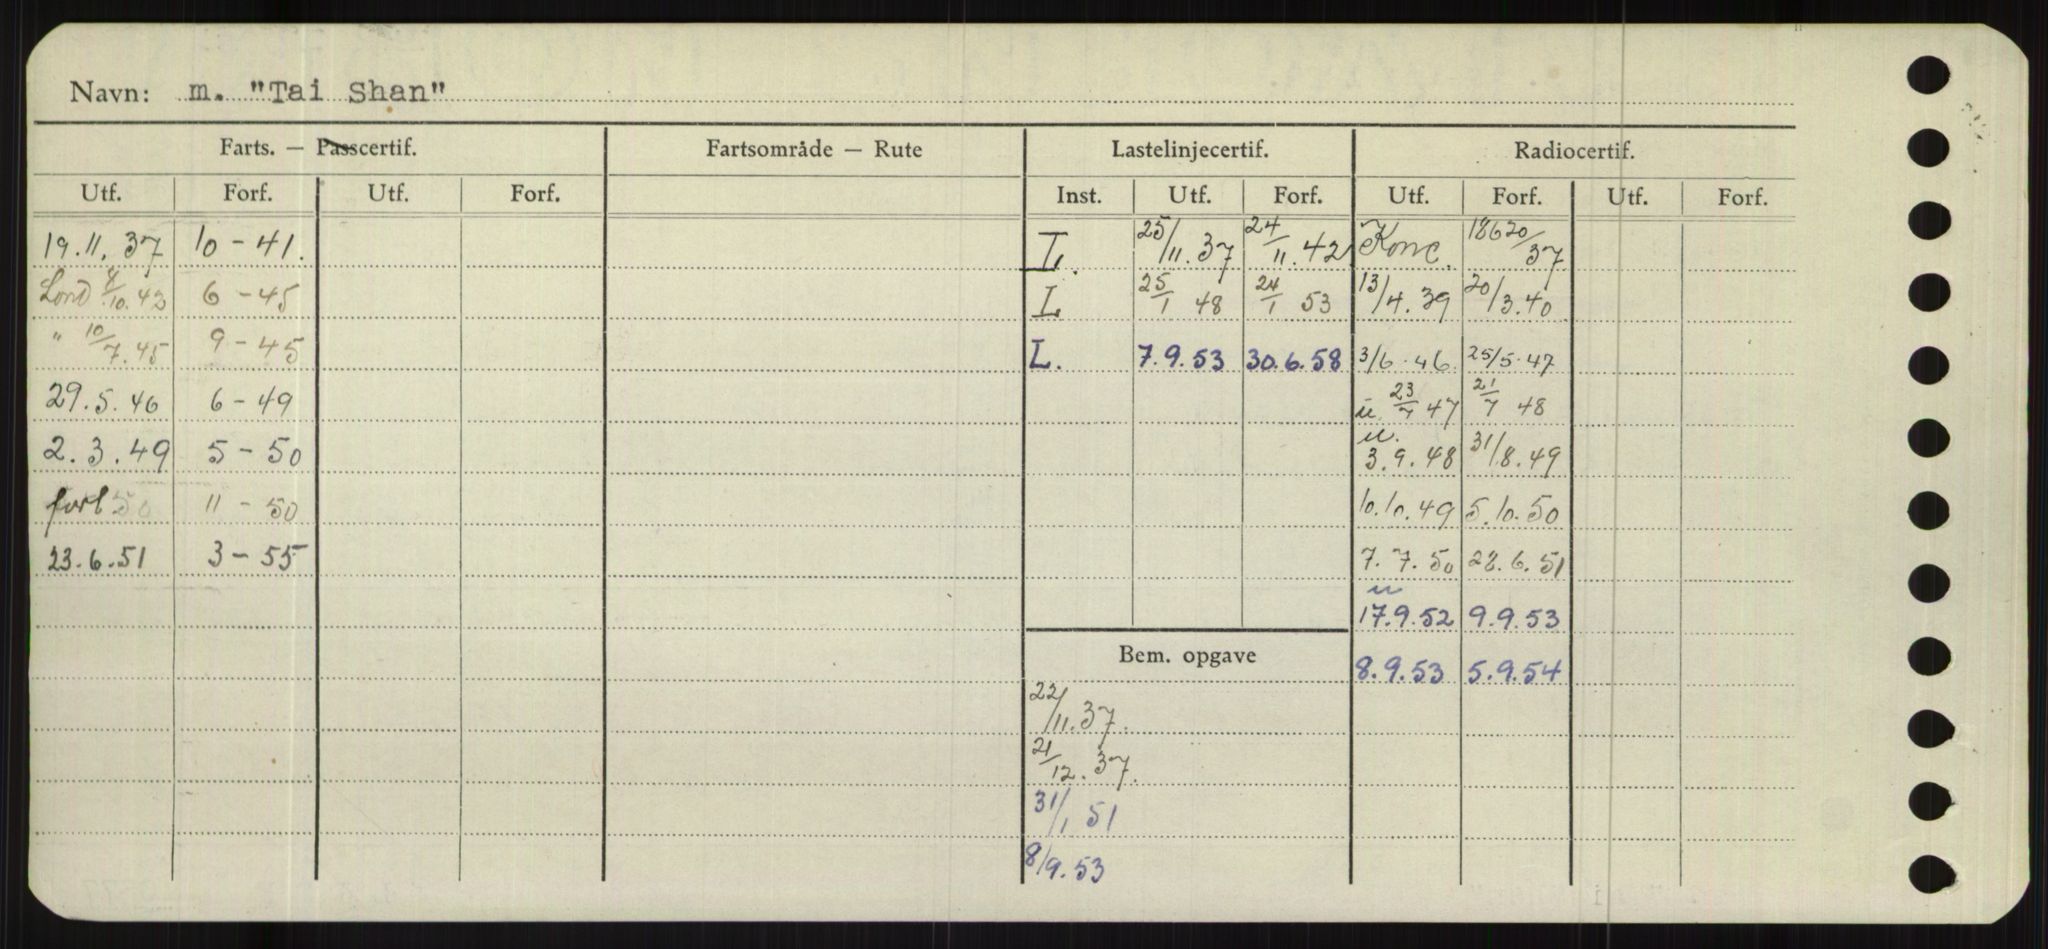 Navn: m. "Tai Shan"
Farts. — Passcertif. Fartsområde — Rute Lastelinjecertif. Radiocertif.
Utf. Forf. Utf. Forf. Inst. Utf. Forf. Utf. Forf. Utf. Forf.
19.11.37 10 - 41. L. 25/11.37 24/11.42 Konc. 18620/37
Lond 8/10.42 6 - 45 L 25/1 48 24/1 53 13/4.39 20/3.40
" 10/7.45 9 - 45 L. 7.9.53 30.6.58 3/6.46 25/5.47
29.5.46 6 - 49 u. 23/7 47 21/7 48
2.3.49 5 - 50 u. 3.9.48 31/8.49
forl 50 11 - 50 10.10.49 5.10.50
23.6.51 3 - 55 7.7.50 28.6.51
u 17.9.52 9.9.53
Bem. opgave 8.9.53 5.9.54
22/11.37.
21/12.37.
31/1 51
8/9.53